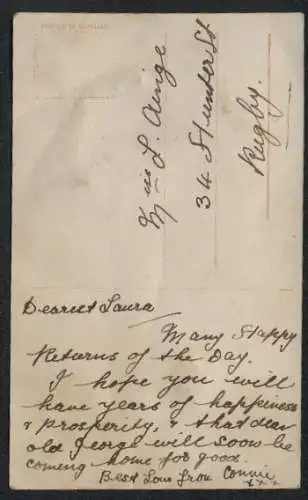 Miss L. Ainge
34 Hunter St
Rugby.
Dearest Laura
Many Happy
Returns of the Day.
I hope you will
have years of happiness
& prosperity, & that dear
old George will soon be
coming home for good.
Best Love from Connie
x x x